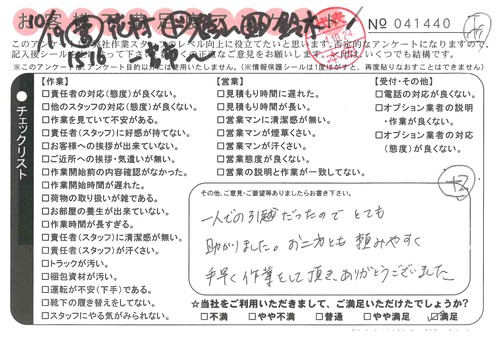 No 041440
このアンケートは
作業スタッフのレベル向上に役立てたいと思います。否定的なアンケートになりますので、
記入後シール
の正直なご意見をお願い
いくつでも結構です。
※このアンケートは、アンケート目的以外には使用いたしません。(※情報保護シールは1度はがすと、再度貼りなおすことはできません)
チェックリスト
【作業】
□責任者の対応(態度)が良くない。
□他のスタッフの対応(態度)が良くない。
□作業を見ていて不安がある。
□責任者(スタッフ)に好感が持てない。
□お客様への挨拶が出来ていない。
□ご近所への挨拶・気遣いが無い。
□作業開始前の内容確認がなかった。
□作業開始時間が遅れた。
□荷物の取り扱いが雑である。
□お部屋の養生が出来ていない。
□作業時間が長すぎる。
□責任者(スタッフ)に清潔感が無い。
□責任者(スタッフ)が汗くさい。
□トラックが汚い。
□梱包資材が汚い。
□運転が不安(下手)である。
□靴下の履き替えをしてない。
□スタッフにやる気がみられない。
【営業】
□見積もり時間に遅れた。
□見積もり時間が長い。
□営業マンに清潔感が無い。
□営業マンが煙草くさい。
□営業マンが汗くさい。
□営業態度が良くない。
□営業の説明と作業が一致してない。
【受付・その他】
□電話の対応が良くない。
□オプション業者の説明
・作業が良くない。
□オプション業者の対応
(態度)が良くない。
その他、ご意見・ご要望等ありましたらお書き下さい。
一人での引越だったので とても
助かりました。お二方とも 頼みやすく
手早く作業をして頂き、ありがとうございました
☆当社をご利用いただきまして、ご満足いただけたでしょうか?
□不満 □やや不満 □普通 □やや満足 ☑満足